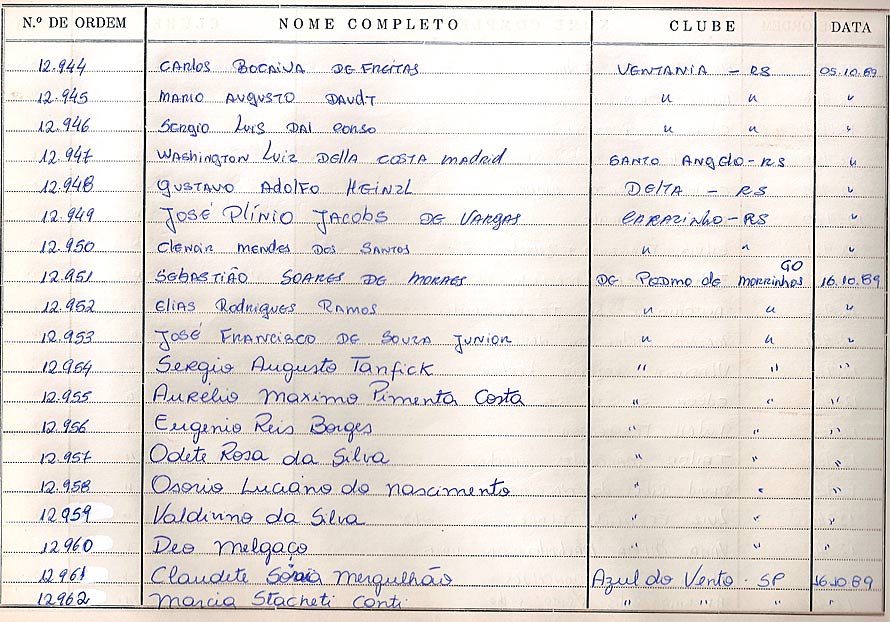 N.º DE ORDEM NOME COMPLETO CLUBE DATA
12.944 CARLOS BOCAIVA DE FREITAS VENTANIA - RS 05.10.89
12.945 MARIO AUGUSTO DAUDT " " "
12.946 SERGIO LUIS DAL CONSO " " "
12.947 WASHINGTON LUIZ DELLA COSTA MADRID SANTO ANGELO - RS "
12.948 GUSTAVO ADOLFO HEINZL DELTA - RS "
12.949 JOSÉ PLÍNIO JACOBS DE VARGAS CARAZINHO - RS "
12.950 CLENOIR MENDES DOS SANTOS " " "
GO
12.951 SEBASTIÃO SOARES DE MORAES DE MORRINHOS 16.10.89
12.952 ELIAS RODRIGUES RAMOS " " "
12.953 JOSÉ FRANCISCO DE SOUZA JUNIOR " " "
12.954 Sergio Augusto Tanfick " " "
12.955 Aurelio Maximo Pimenta Costa " " "
12.956 Eugenio Reis Borges " " "
12.957 Odete Rosa da Silva " " "
12.958 Osorio Luciano do nascimento " " "
12.959 Valdivino da Silva " " "
12.960 Deo Melgaço " " "
12.961 Claudete Sônia Mergulhão Azul do Vento - SP 16.10.89
12.962 Marcia Stacheti Conti " " " "